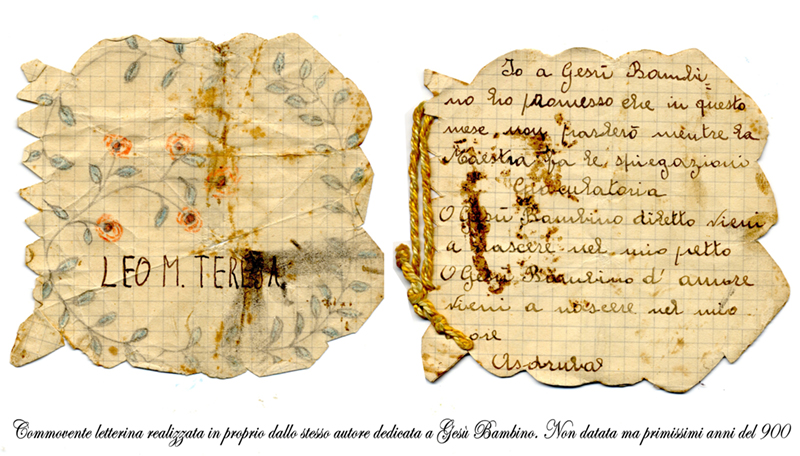 LEO M. TERESA
Io a Gesù Bambi
no ho promesso che in questo
mese non parlerò mentre la
Maestra fa le spiegazioni
Giaculatoria
O Gesù Bambino diletto vieni
a nascere nel mio petto
O Gesù Bambino d' amore
vieni a nascere nel mio
ore
Asdrubal
Commovente letterina realizzata in proprio dallo stesso autore dedicata a Gesù Bambino. Non datata ma primissimi anni del 900